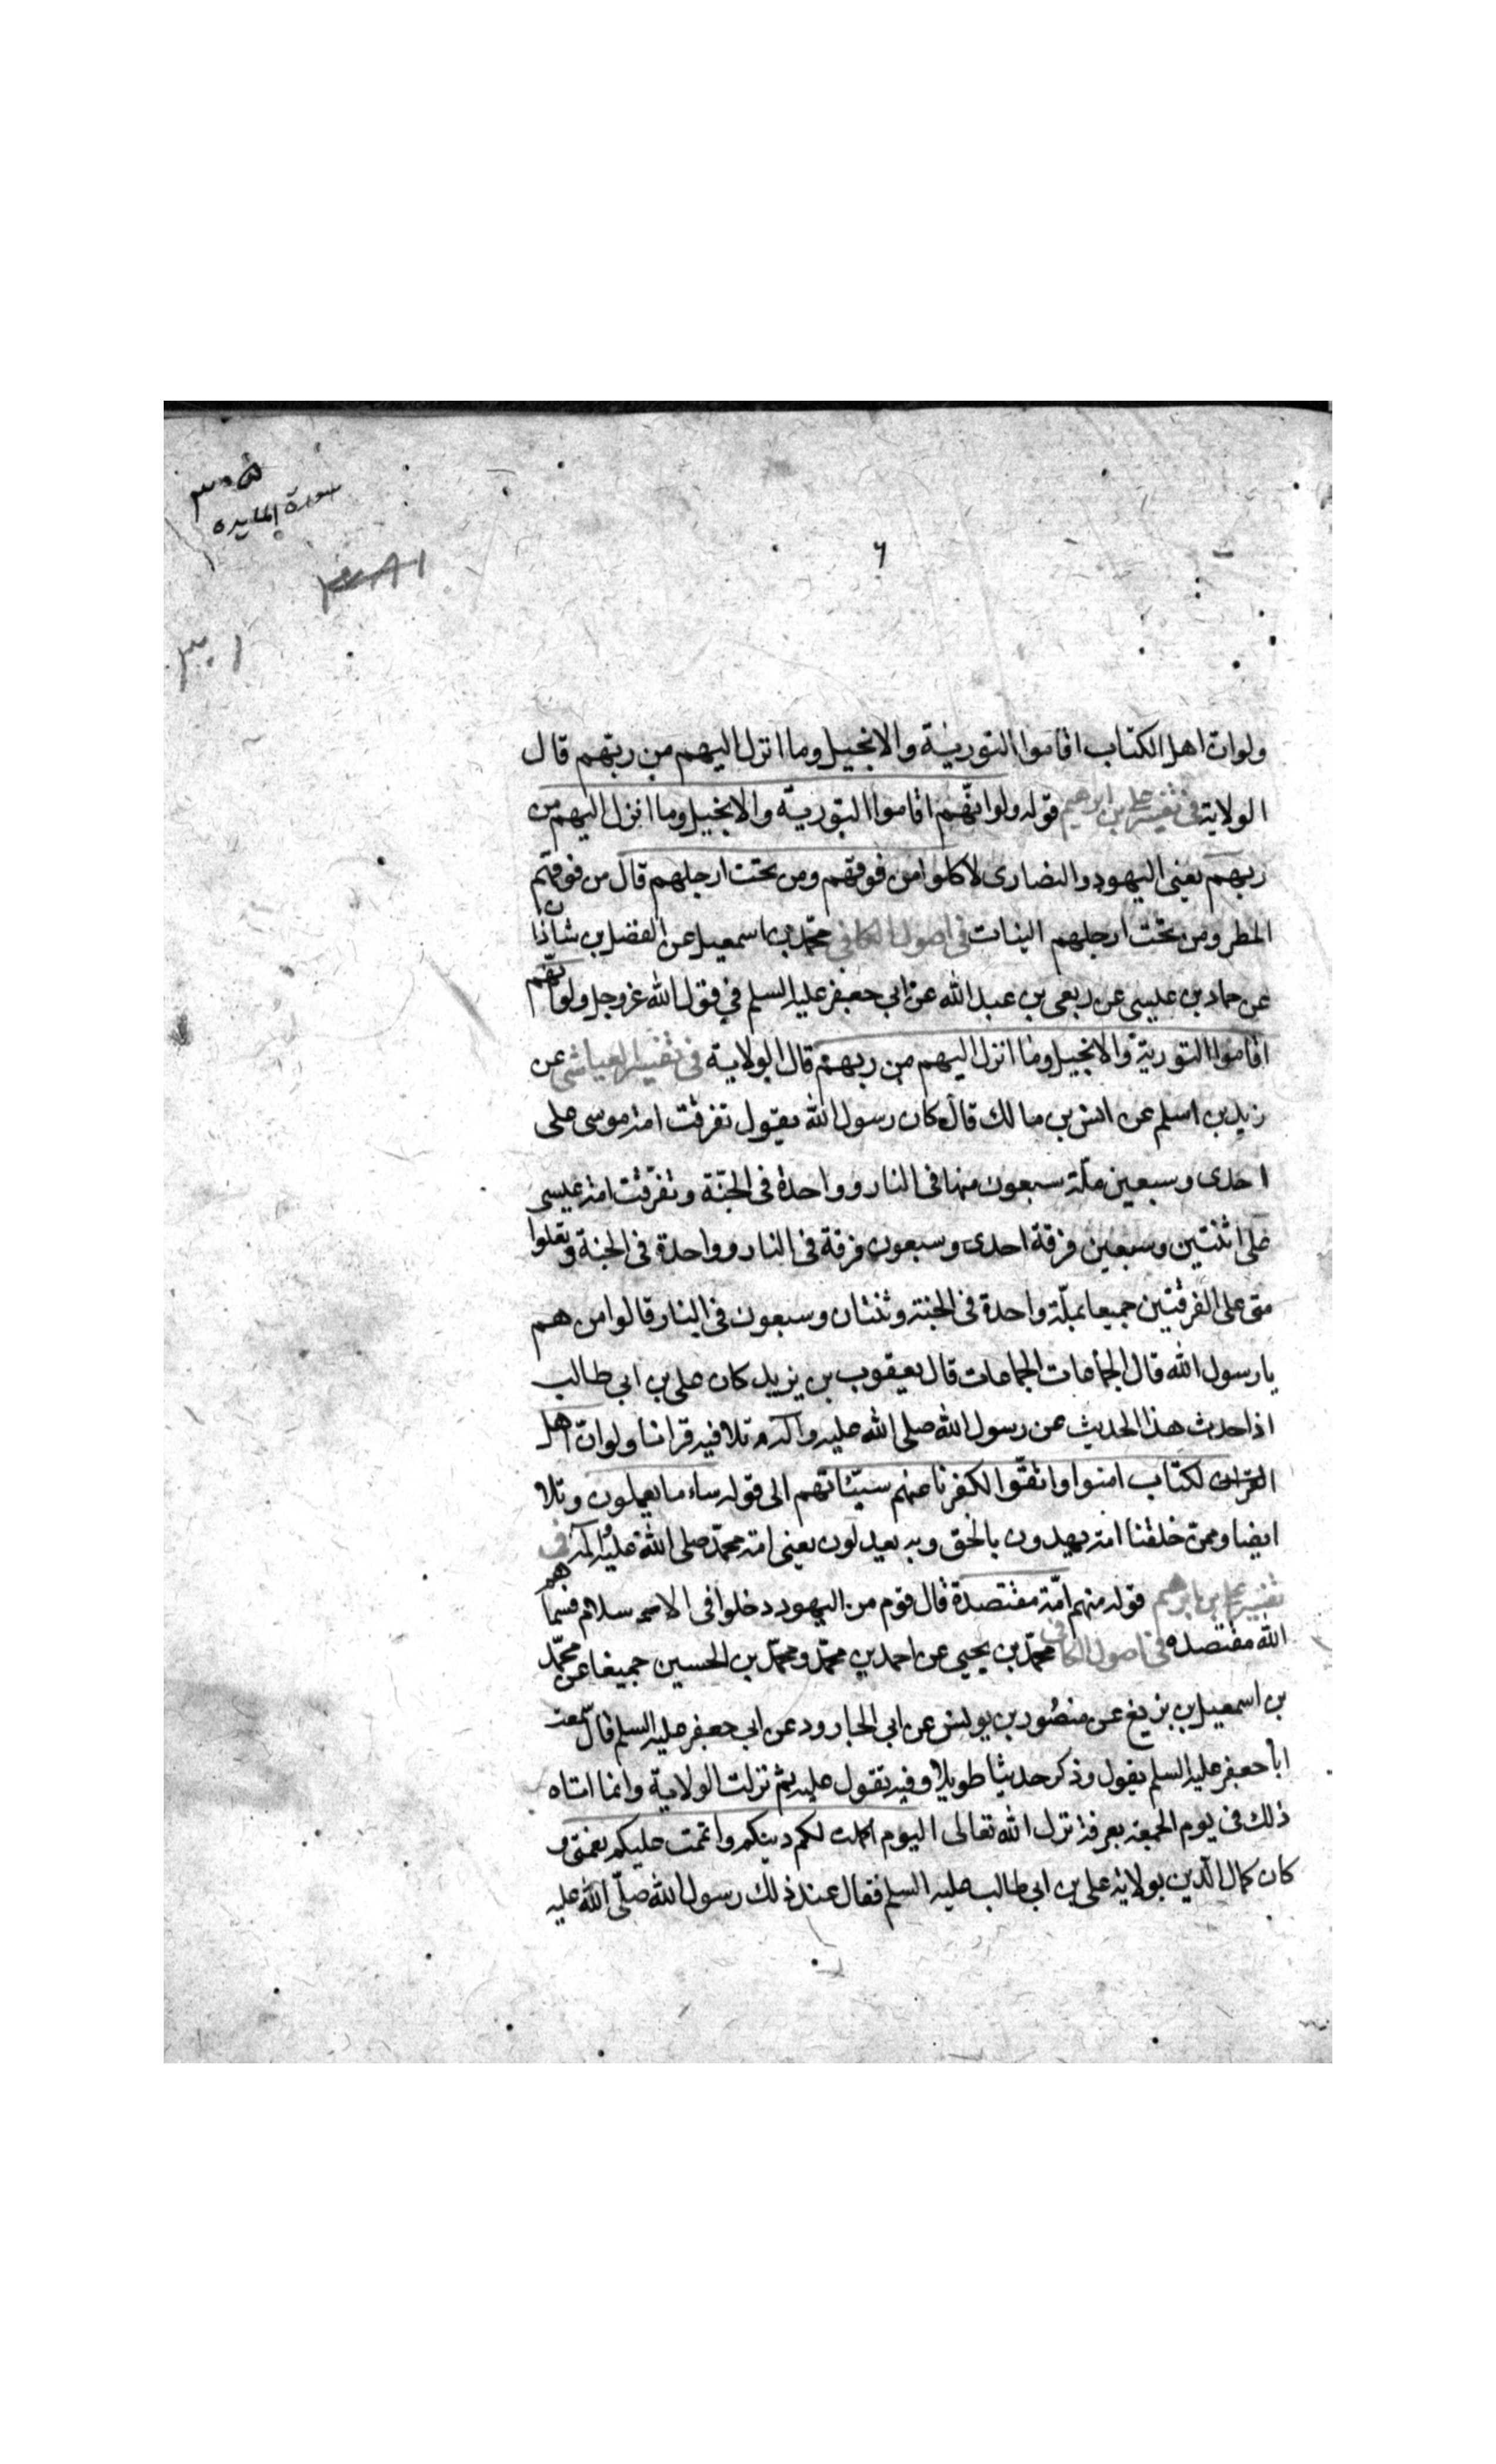 سورة المايده
٦
ولو ان اهل الكتاب اقاموا التورية والانجيل وما انزل اليهم من ربهم قال
الولاية في تفسير علي بن ابرهيم قوله ولو انهم اقاموا التورية والانجيل وما انزل اليهم من
ربهم يعنى اليهود والنصارى لاكلوا من فوقهم ومن تحت ارجلهم قال من فوقهم
المطر ومن تحت ارجلهم النبات في اصول الكافي محمد بن اسمعيل عن الفضل بن شاذان
عن حماد بن عيسى عن ربعى بن عبد الله عن ابي جعفر عليه السلم في قول الله عز وجل ولو انهم
اقاموا التورية والانجيل وما انزل اليهم من ربهم قال الولاية في تفسير العياشي عن
زيد بن اسلم عن انس بن مالك قال كان رسول الله يقول تفرقت امة موسى على
احدى وسبعين ملة سبعون منها فى النار وواحدة فى الجنة وتفرقت امة عيسى
على اثنتين وسبعين فرقة احدى وسبعون فرقة فى النار وواحدة فى الجنة وتعلوا
متى على الفرقتين جميعا بملة واحدة فى الجنة وثنتان وسبعون فى النار قالوا من هم
يا رسول الله قال الجماعات الجماعات قال يعقوب بن يزيد كان على بن ابى طالب
اذا حدث هذا الحديث عن رسول الله صلى الله عليه وآله تلا فيه قرانا ولو ان اهل
الكتاب امنوا واتقوا لكفرنا عنهم سيئاتهم الى قوله ساء ما يعملون وتلا
ايضا وممن خلقنا امة يهدون بالحق وبه يعدلون يعنى امة محمد صلى الله عليه وآله في
تفسير علي بن ابرهيم قوله منهم امة مقتصدة قال قوم من اليهود دخلوا فى الاسلام فسماهم
الله مقتصده في اصول الكافي محمد بن يحيى عن احمد بن محمد ومحمد بن الحسين جميعا عن محمد
بن اسمعيل بن بزيع عن منصور بن يونس عن ابى الجارود عن ابى جعفر عليه السلم قال سمعت
ابا جعفر عليه السلم يقول وذكر حديثا طويلا وفيه يقول عليه ثم نزلت الولاية وانما اتاه
ذلك فى يوم الجمعة بعرفة نزل الله تعالى اليوم اكملت لكم دينكم واتممت عليكم نعمتى و
كان كمال الدين بولاية على بن ابى طالب عليه السلم فقال عند ذلك رسول الله صلى الله عليه